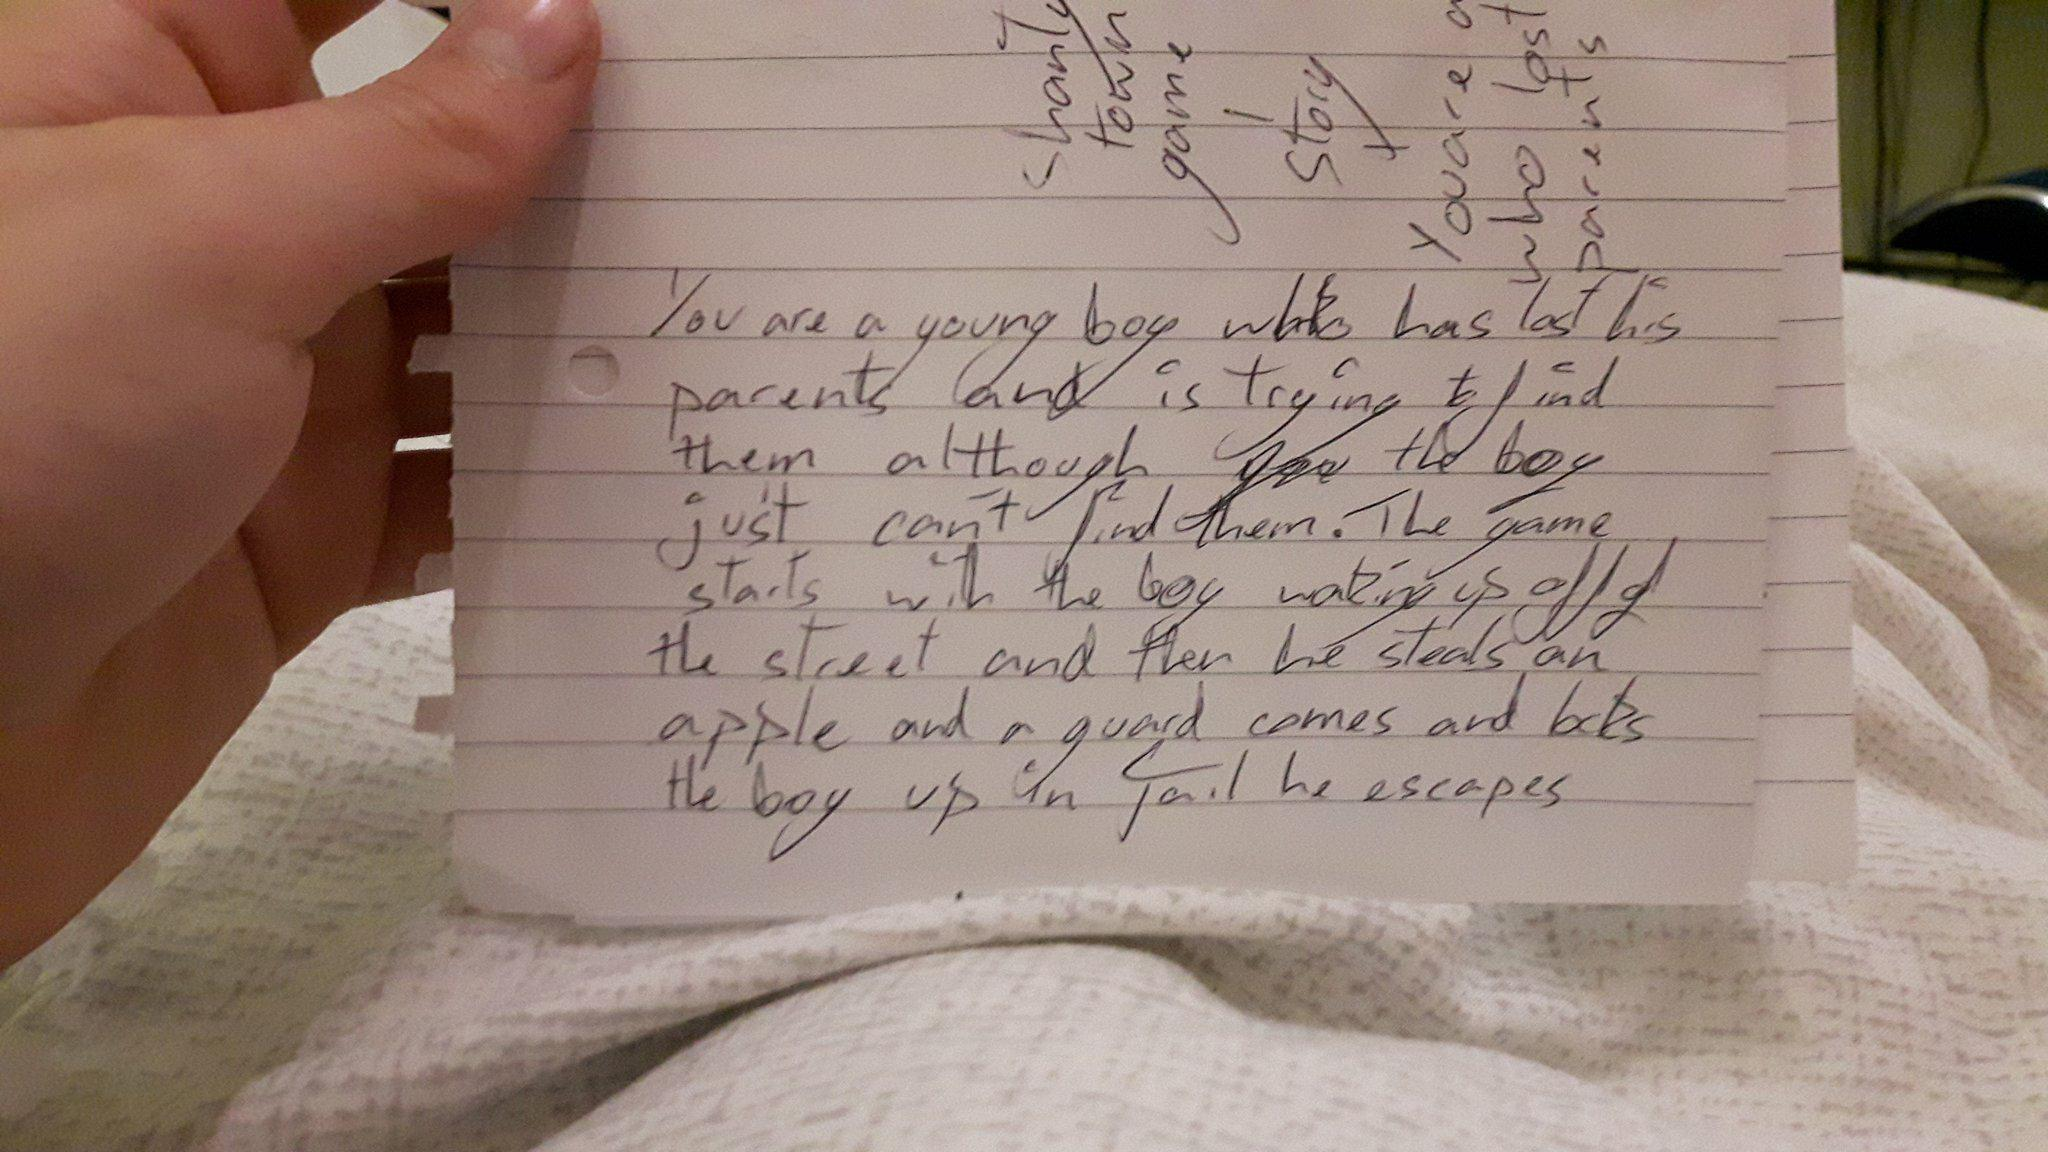 shanty
town
game
story
You are a
who lost
parents
You are a young boy who has lost his
parents and is trying to find
them although the boy
just can't find them. The game
starts with the boy waking up off of
the street and then he steals an
apple and a guard comes and locks
the boy up in jail he escapes